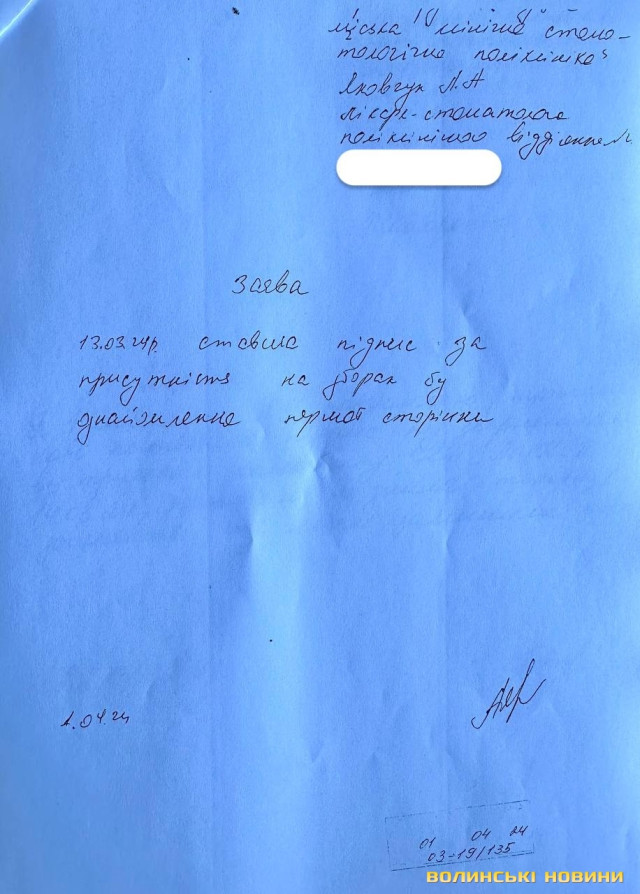 міська клінічна стомато-
тологічна поліклініка"
Яковчук Л.А
лікаря-стоматолога
поліклінічного відділення
Заява
13.03.24р. ставила підпис за
присутність на зборах бу
ознайомлення першої сторінки
1.04.24
01 04 24
03-19/135
ВОЛИНСЬКІ НОВИНИ